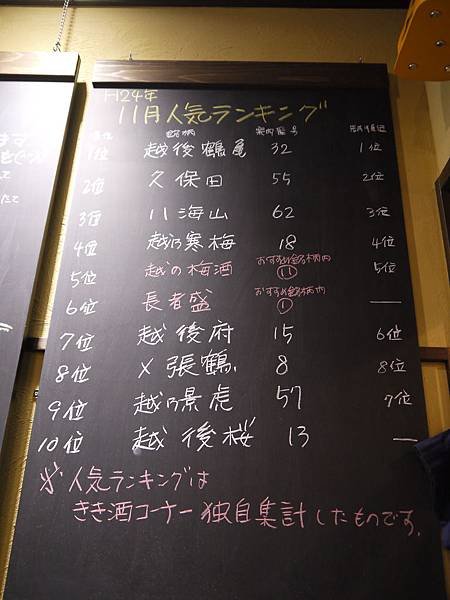 H24年
11月人気ランキング
順位 銘柄 案内番号 前月順位
1位 越後鶴亀 32 1位
2位 久保田 55 2位
3位 八海山 62 3位
4位 越乃寒梅 18 4位
5位 越の梅酒 おすすめ銘柄内 ⑪ 5位
6位 長者盛 おすすめ銘柄内 ① —
7位 越後府 15 6位
8位 〆張鶴 8 8位
9位 越乃景虎 57 7位
10位 越後桜 13 —
※人気ランキングは
きき酒コーナー独自集計したものです。